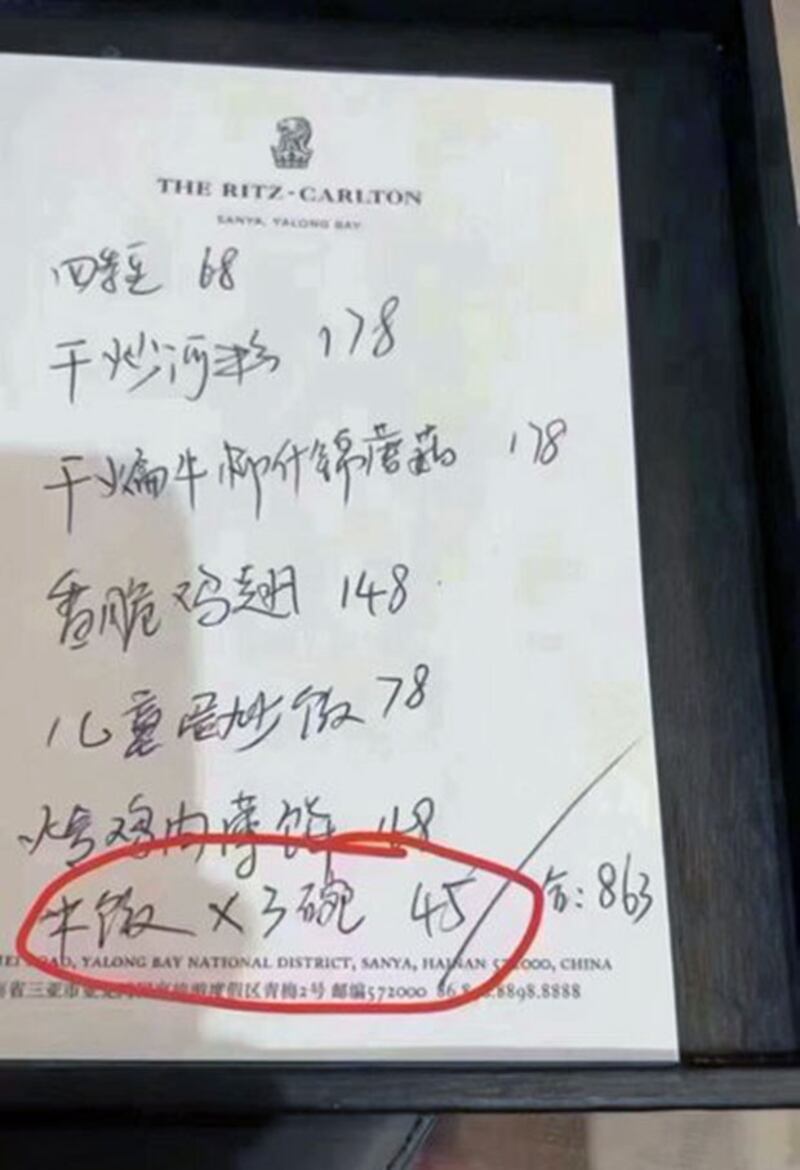 THE RITZ-CARLTON
SANYA, YALONG BAY
68
干炒河粉 178
干煸牛柳什锦蘑菇 178
香脆鸡翅 148
儿童蛋炒饭 78
烤鸡肉薄饼 168
米饭 × 3碗 45 合: 863
ROAD, YALONG BAY NATIONAL DISTRICT, SANYA, HAINAN 572000, CHINA
省三亚市亚龙湾国家旅游度假区青梅2号 邮编572000 .8898.8888